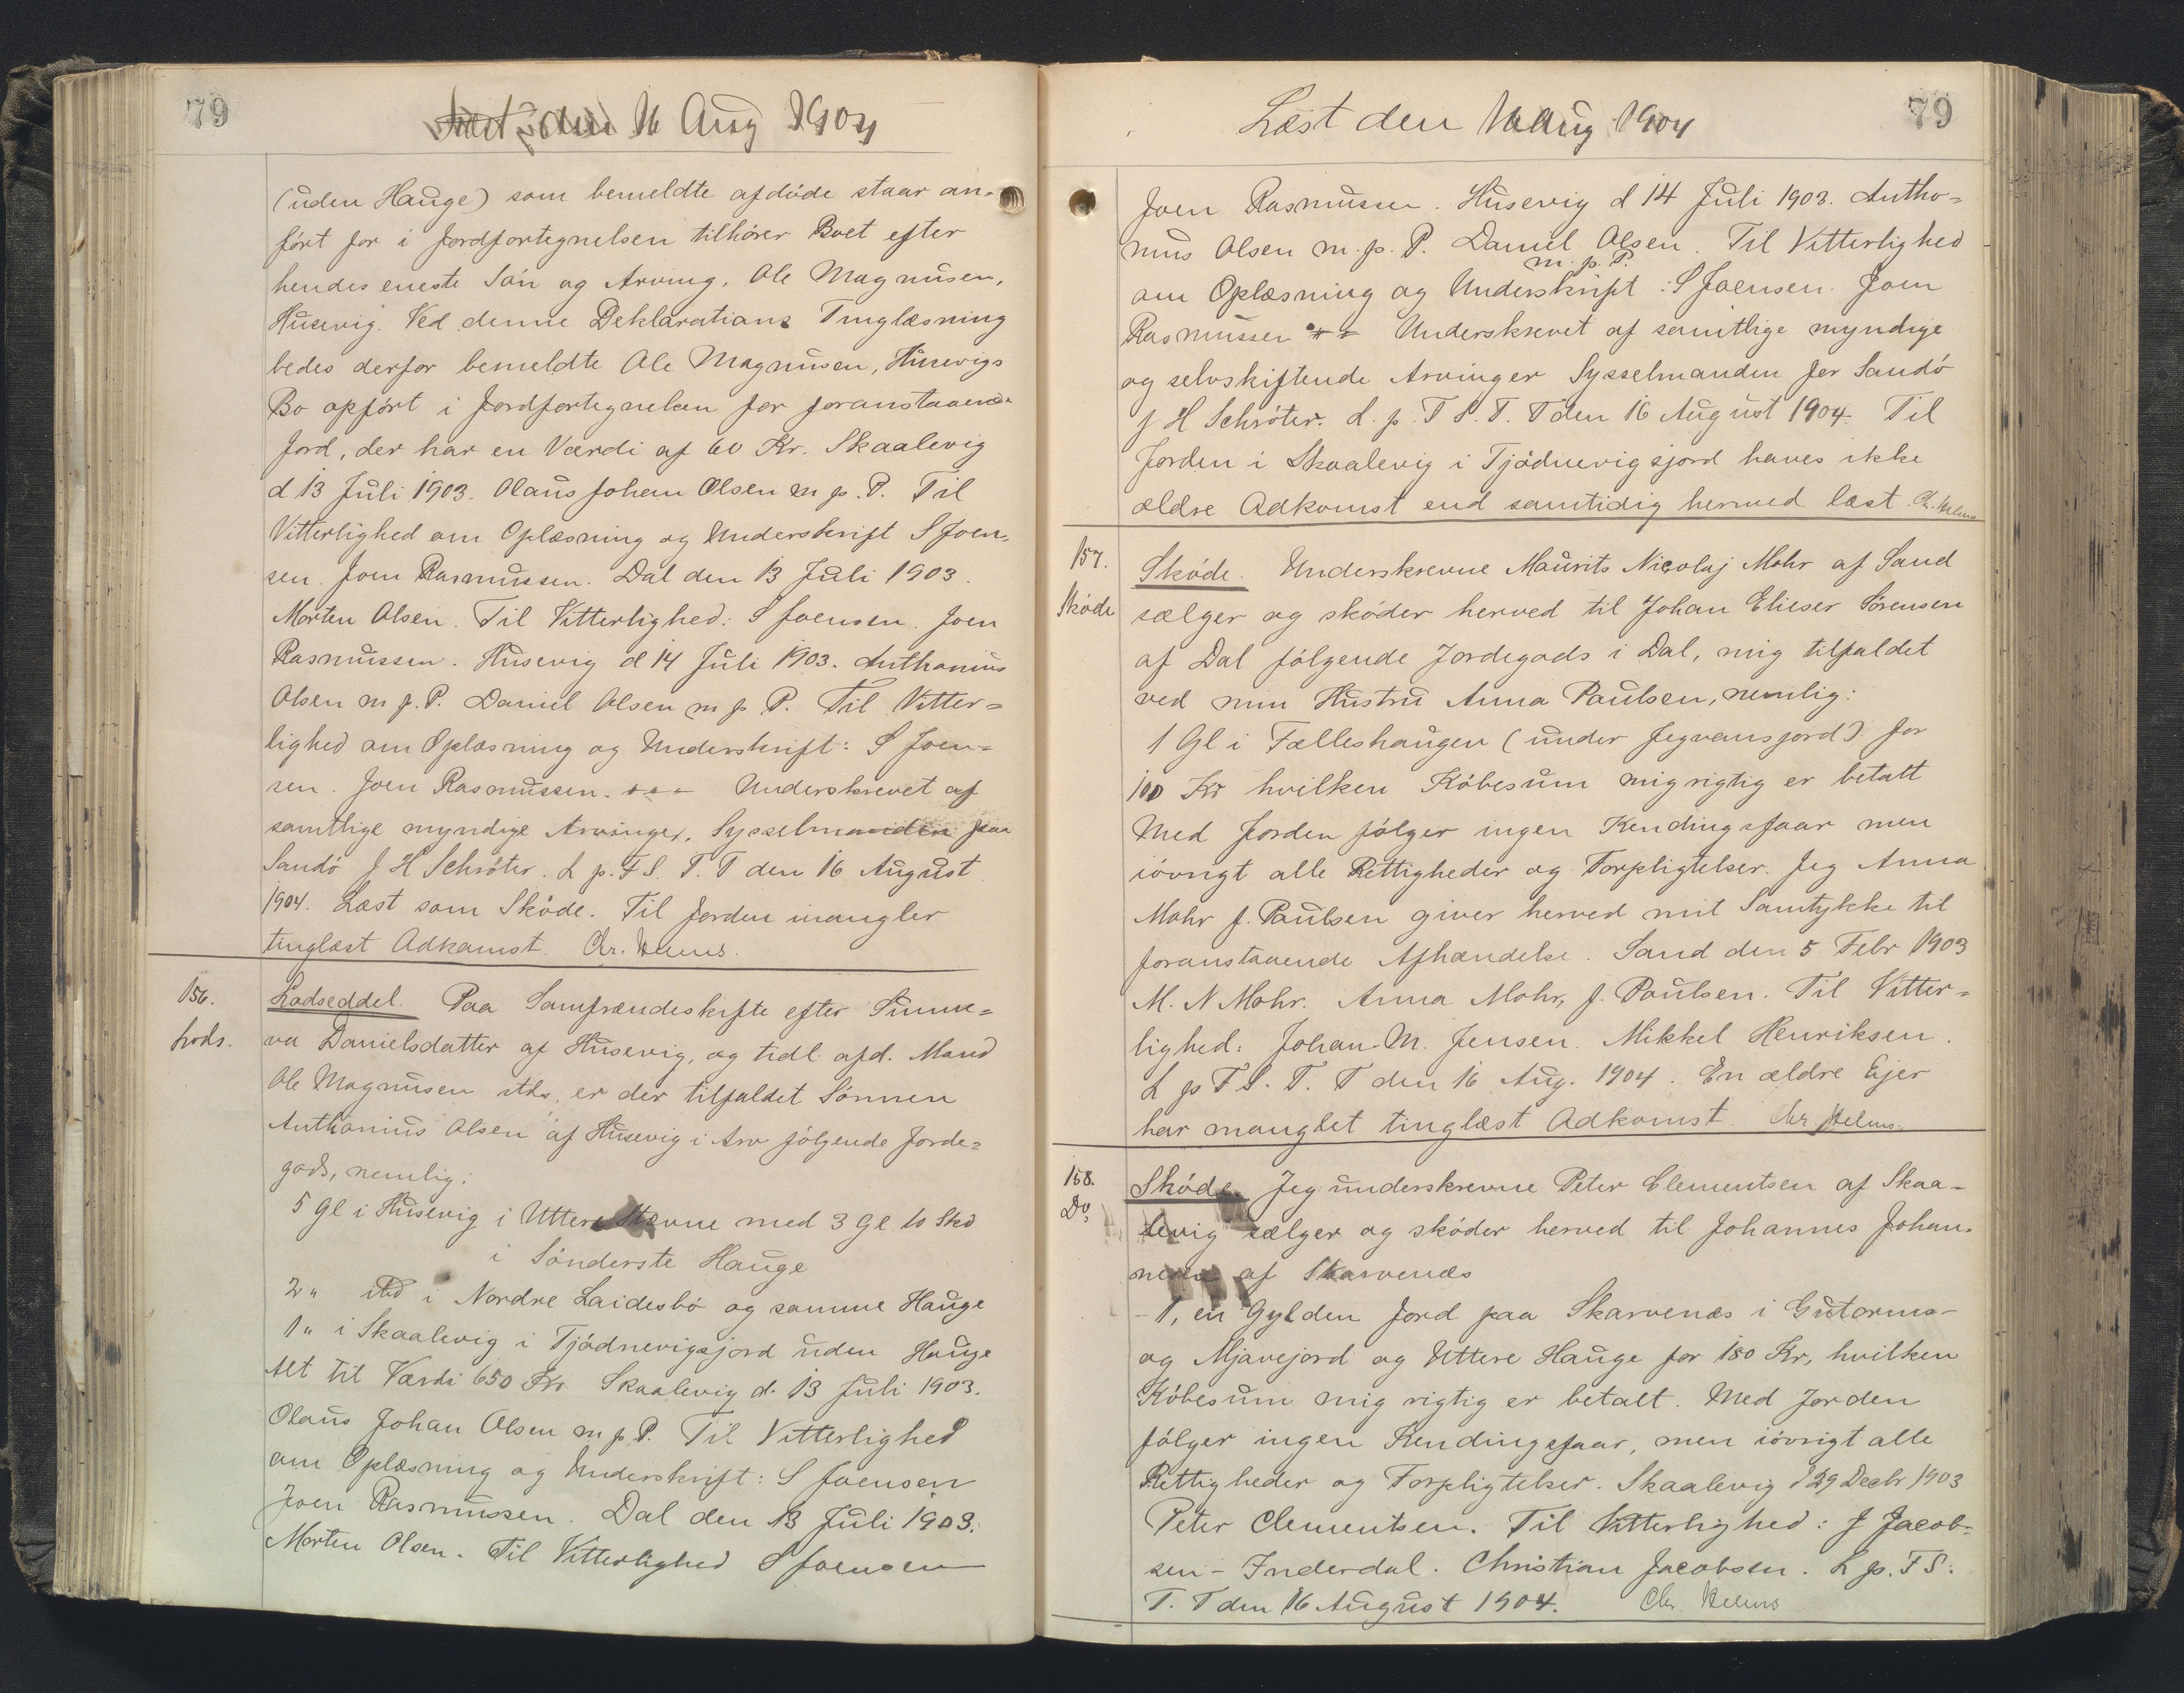 79
Læst den 16 Aug 1904
(uden Hauge) som bemeldte afdöde staar an=
fört for i Jordfortegnelsen tilhörer Boet efter
hendes eneste Sön og Arving, Ole Magnusen,
Husevig. Ved denne Deklarations Tinglæsning
bedes derfor bemeldte Ole Magnusen, Husevigs
Bo opfört i Jordfortegnelsen for foranstaaende
Jord, der har en Værdi af 60 Kr. Skaalevig
d 13 Juli 1903. Olaus Johan Olsen m. p. P. Til
Vitterlighed om Oplæsning og Underskrift S Joen=
sen. Joen Rasmussen. Dal den 13 Juli 1903.
Morten Olsen. Til Vitterlighed: S Joensen. Joen
Rasmussen. Husevig d 14 Juli 1903. Anthonius
Olsen m p. P. Daniel Olsen m p P. Til Vitter=
lighed om Oplæsning og Underskrift: S Joen=
sen. Joen Rasmussen. Underskrevet af
samtlige myndige Arvinger. Sysselmanden paa
Sandö J H Schröter. L p. F S. T. T den 16 August
1904. Læst som Sköde. Til Jorden mangler
tinglæst Adkomst. Chr. Helms.
156. Lodseddel. Paa Samfrændeskifte efter Sunne=
Lods. va Danielsdatter af Husevig, og tidl. afd. Mand
Ole Magnusen stds, er der tilfaldet Sönnen
Anthonius Olsen af Husevig i Arv fölgende Jorde=
gods, nemlig:
5 Gl i Husevig i Uttere Stævne med 3 Gl. 10 Skd
i Sönderste Hauge
2 " ibd i Nordre Laidesbö og samme Hauge
1 " i Skaalevig i Tjödnevigsjord uden Hauge
Alt til Værdi 650 Kr. Skaalevig d. 13 Juli 1903.
Olaus Johan Olsen m p. P. Til Vitterlighed
om Oplæsning og Underskrift: S Joensen
Joen Rasmussen. Dal den 13 Juli 1903.
Morten Olsen. Til Vitterlighed S Joensen
79
Læst den 16 Aug 1904
Joen Rasmussen. Husevig d 14 Juli 1903. Antho=
nius Olsen m. p. P. Daniel Olsen m. p. P. Til Vitterlighed
om Oplæsning og Underskrift: S Joensen. Joen
Rasmussen Underskrevet af samtlige myndige
og selvskiftende Arvinger Sysselmanden for Sandö
J H Schröter. L. p. F S. T. T den 16 August 1904. Til
Jorden i Skaalevig i Tjödnevigsjord haves ikke
ældre Adkomst end samtidig hermed læst. Chr. Helms
157. Sköde. Underskrevne Maurits Nicolaj Mohr af Sand
Sköde sælger og sköder herved til Johan Elieser Sörensen
af Dal fölgende Jordegods i Dal, mig tilfaldet
ved min Hustru Anna Paulsen, nemlig:
1 Gl i Fælleshaugen (under Jegvansjord) for
100 Kr hvilken Köbesum mig rigtig er betalt
Med Jorden fölger ingen Kendingsfaar men
iövrigt alle Rettigheder og Forpligtelser. Jeg Anna
Mohr f. Paulsen giver herved mit Samtykke til
foranstaaende Afhændelse. Sand den 5 Febr 1903
M. N Mohr. Anna Mohr, f. Paulsen. Til Vitter=
lighed: Johan M. Jensen. Mikkel Henriksen.
L p F S. T. T den 16 Aug. 1904. En ældre Ejer
har manglet tinglæst Adkomst. Chr Helms.
158. Sköde. Jeg underskrevne Peter Clementsen af Skaa=
Do. levig sælger og sköder herved til Johannes Johan=
nesen af Skarvenæs
1, en Gylden Jord paa Skarvenæs i Gutorms-
og Mjavejord og Uttere Hauge for 180 Kr, hvilken
Köbesum mig rigtig er betalt. Med Jorden
fölger ingen Kendingsfaar, men iövrigt alle
Rettigheder og Forpligtelser. Skaalevig d 29 Decbr 1903
Peter Clementsen. Til Vitterlighed: J Jacob=
sen - Inderdal. Christian Jacobsen. L p. F S.
T. T den 16 August 1904. Chr. Helms